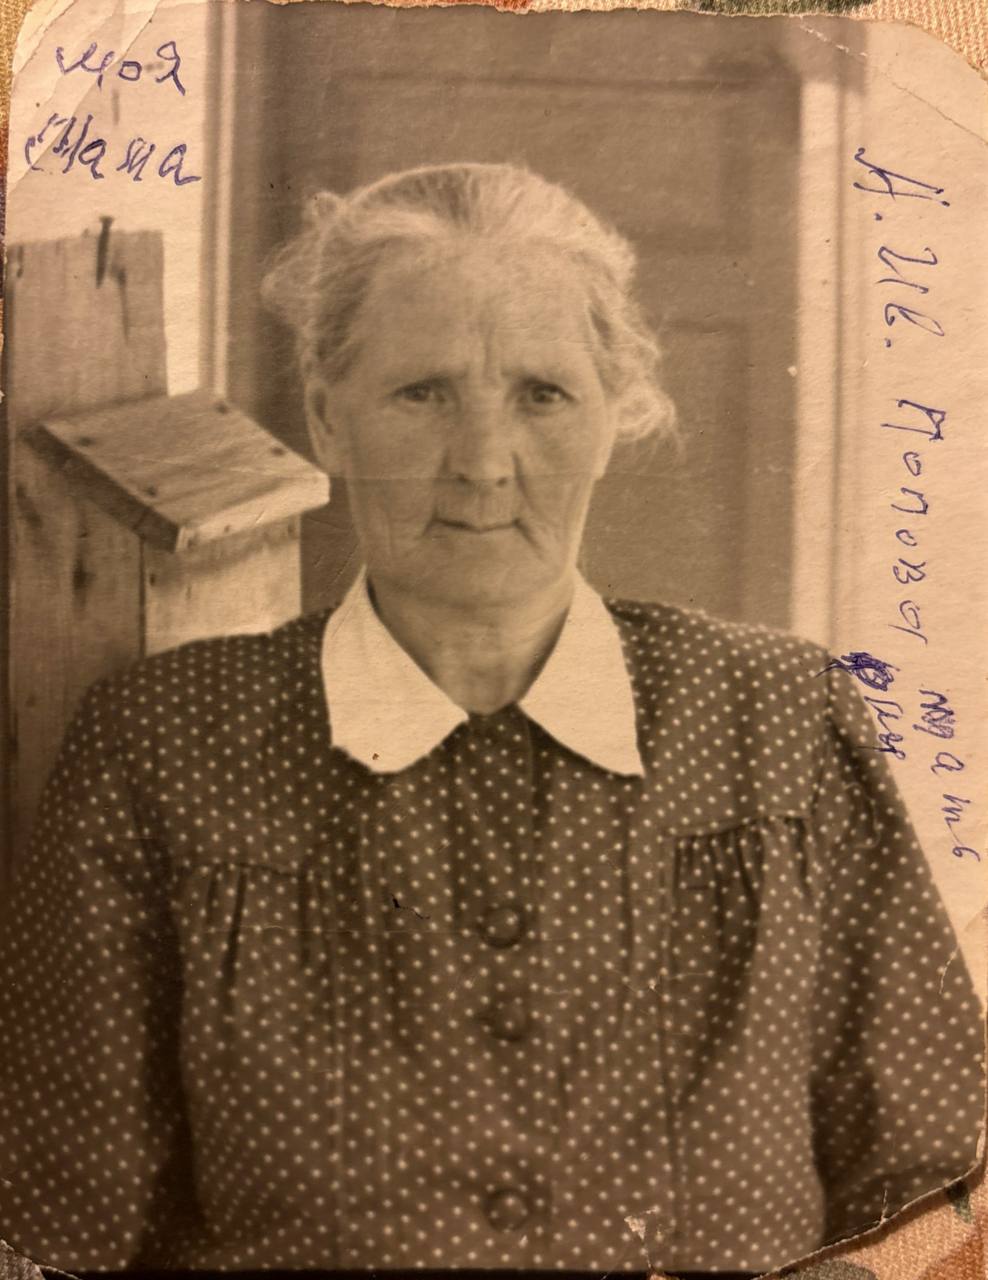 моя
Мама
А. Ив. Попова
мать